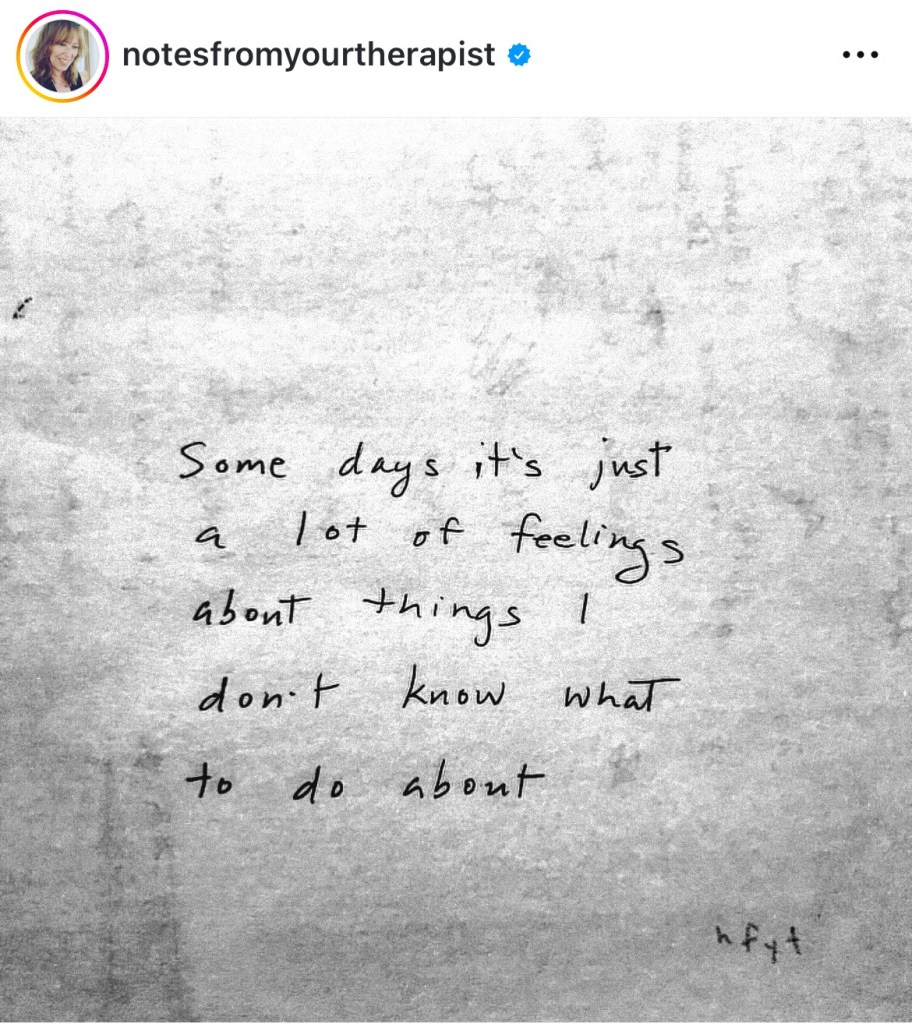 notesfromyourtherapist
Some days it's just
a lot of feelings
about things I
don't know what
to do about
nfyt